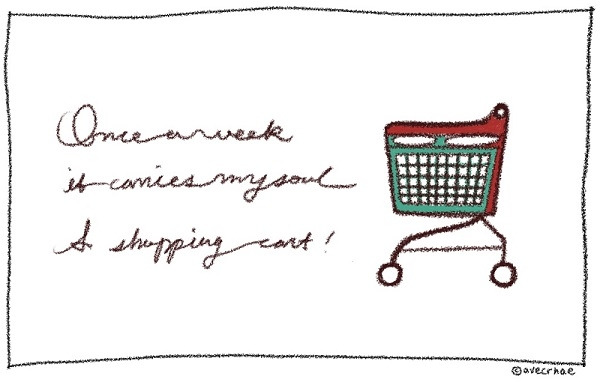 Once a week
it carries my soul
A shopping cart!
©avecrhae